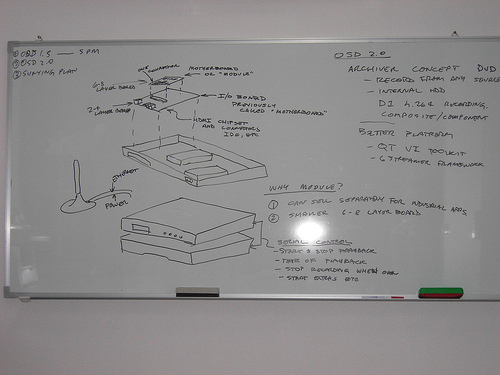 ① OSD 1.5 — 5PM
② OSD 2.0
③ SURVEY PLAN
OMAP
MOTHERBOARD
OR "MODULE"
6-8
LAYER BOARD
2-4
LAYER BOARD
I/O BOARD
PREVIOUSLY
CALLED "MOTHERBOARD"
HDMI CHIPSET
AND CONNECTORS
IDE, ETC
ETHERNET
POWER
OSD 2.0
ARCHIVER CONCEPT DVD
- RECORD FROM ANY SOURCE
- INTERNAL HDD
D1 H.264 RECORDING,
COMPOSITE/COMPONENT
BETTER PLATFORM
- QT UI TOOLKIT
- GSTREAMER FRAMEWORK
WHY MODULE?
① CAN SELL SEPARATELY FOR INDUSTRIAL APPS
② SMALLER 6-8 LAYER BOARD
SERIAL CONTROL
- START & STOP PLAYBACK
- TYPE OF PLAYBACK
- STOP RECORDING WHEN DONE
- START EXTRAS ETC